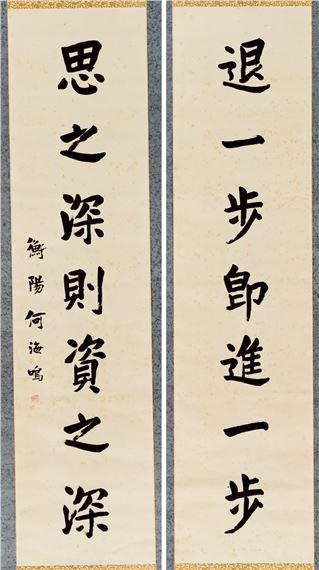 退一步卽進一步
思之深則資之深
衡陽何海鳴